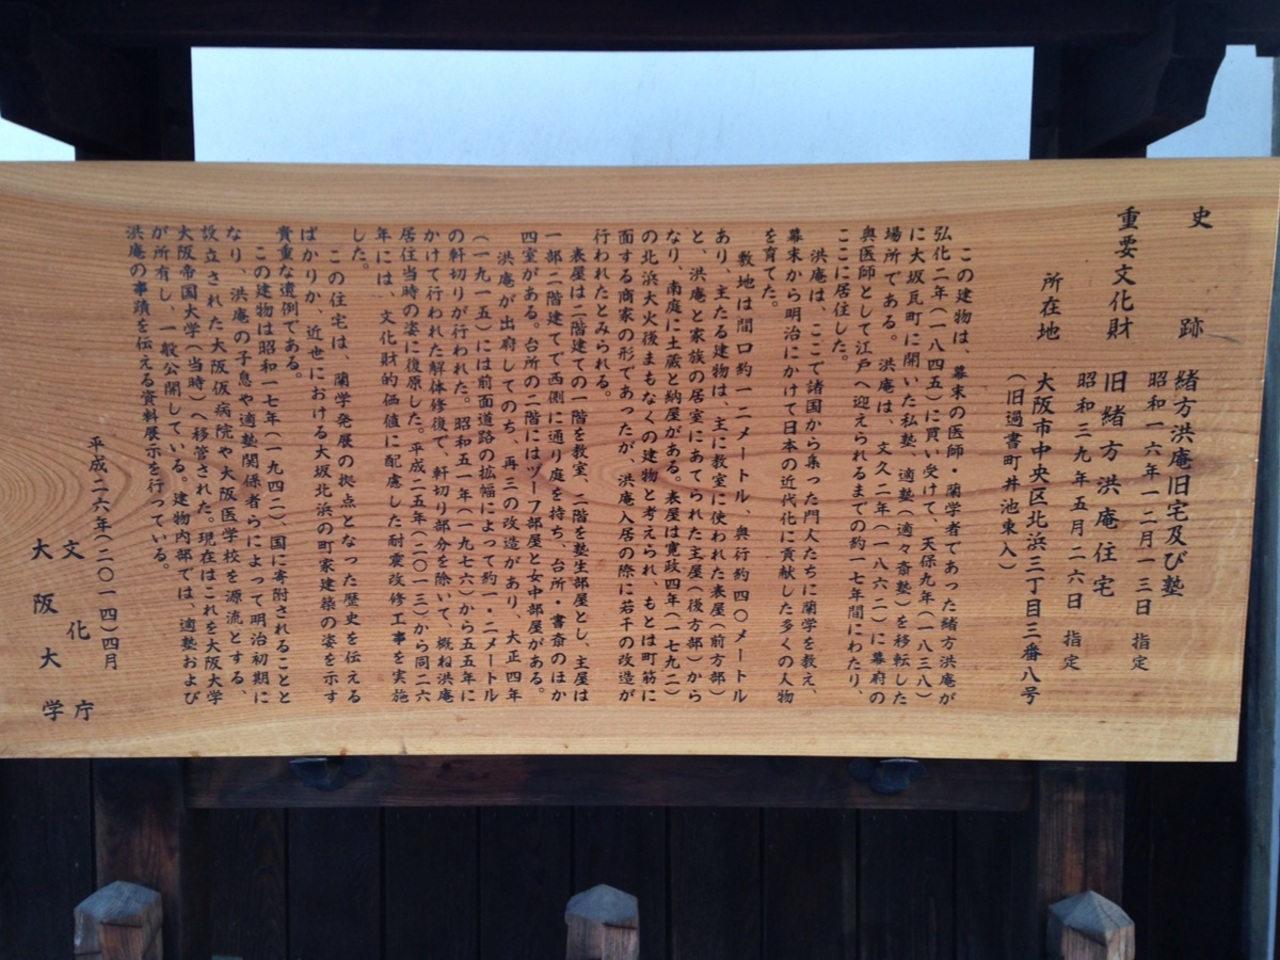 史跡 緒方洪庵旧宅及び塾
昭和一六年一二月一三日 指定
重要文化財 旧緒方洪庵住宅
昭和三九年五月二六日 指定
所在地 大阪市中央区北浜三丁目三番八号
(旧過書町井池東入)
この建物は、幕末の医師・蘭学者であった緒方洪庵が
弘化二年(一八四五)に買い受けて、天保九年(一八三八)
に大坂瓦町に開いた私塾、適塾(適々斎塾)を移転した
場所である。洪庵は、文久二年(一八六二)に幕府の
奥医師として江戸へ迎えられるまでの約一七年間にわたり、
ここに居住した。
洪庵は、ここで諸国から集った門人たちに蘭学を教え、
幕末から明治にかけて日本の近代化に貢献した多くの人物
を育てた。
敷地は間口約一二メートル、奥行約四〇メートル
あり、主たる建物は、主に教室に使われた表屋(前方部)
と、洪庵と家族の居室にあてられた主屋(後方部)から
なり、南庭に土蔵と納屋がある。表屋は寛政四年(一七九二)
の北浜大火後まもなくの建物と考えられ、もとは町筋に
面する商家の形であったが、洪庵入居の際に若干の改造が
行われたとみられる。
表屋は二階建ての一階を教室、二階を塾生部屋とし、主屋は
一部二階建てで西側に通り庭を持ち、台所・書斎のほか
四室がある。台所の二階にはヅーフ部屋と女中部屋がある。
洪庵が出府してのち、再三の改造があり、大正四年
(一九一五)には前面道路の拡幅によって約一・二メートル
の軒切りが行われた。昭和五一年(一九七六)から五五年に
かけて行われた解体修復で、軒切り部分を除いて、概ね洪庵
居住当時の姿に復原した。平成二五年(二〇一三)から同二六
年には、文化財的価値に配慮した耐震改修工事を実施
した。
この住宅は、蘭学発展の拠点となった歴史を伝える
ばかりか、近世における大坂北浜の町家建築の姿を示す
貴重な遺例である。
この建物は昭和一七年(一九四二)、国に寄附されることと
なり、洪庵の子息や適塾関係者らによって明治初期に
設立された大阪仮病院や大阪医学校を源流とする、
大阪帝国大学(当時)へ移管された。現在はこれを大阪大学
が所有し、一般公開している。建物内部では、適塾および
洪庵の事蹟を伝える資料展示を行っている。
平成二六年(二〇一四)四月
文化庁
大阪大学